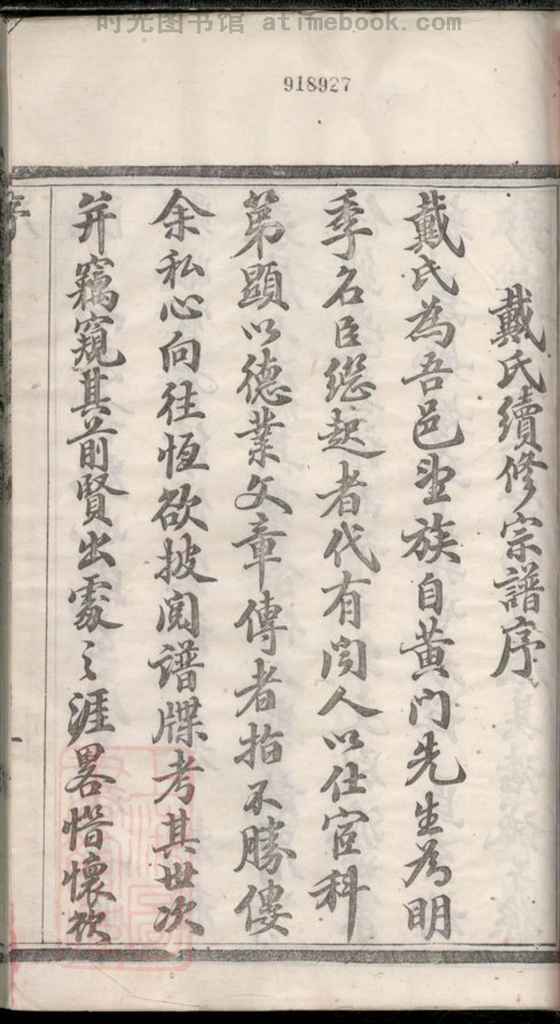 时光图书馆 atimebook.com
918927
戴氏續修宗譜序
戴氏為吾邑望族自黄门先生為明
季名臣繼起者代有闻人以仕宦科
第顯以德業文章傳者指不勝僂
余私心向往恆欲披阅譜牒考其世次
并竊窺其前賢出處之涯畧惜懷欲